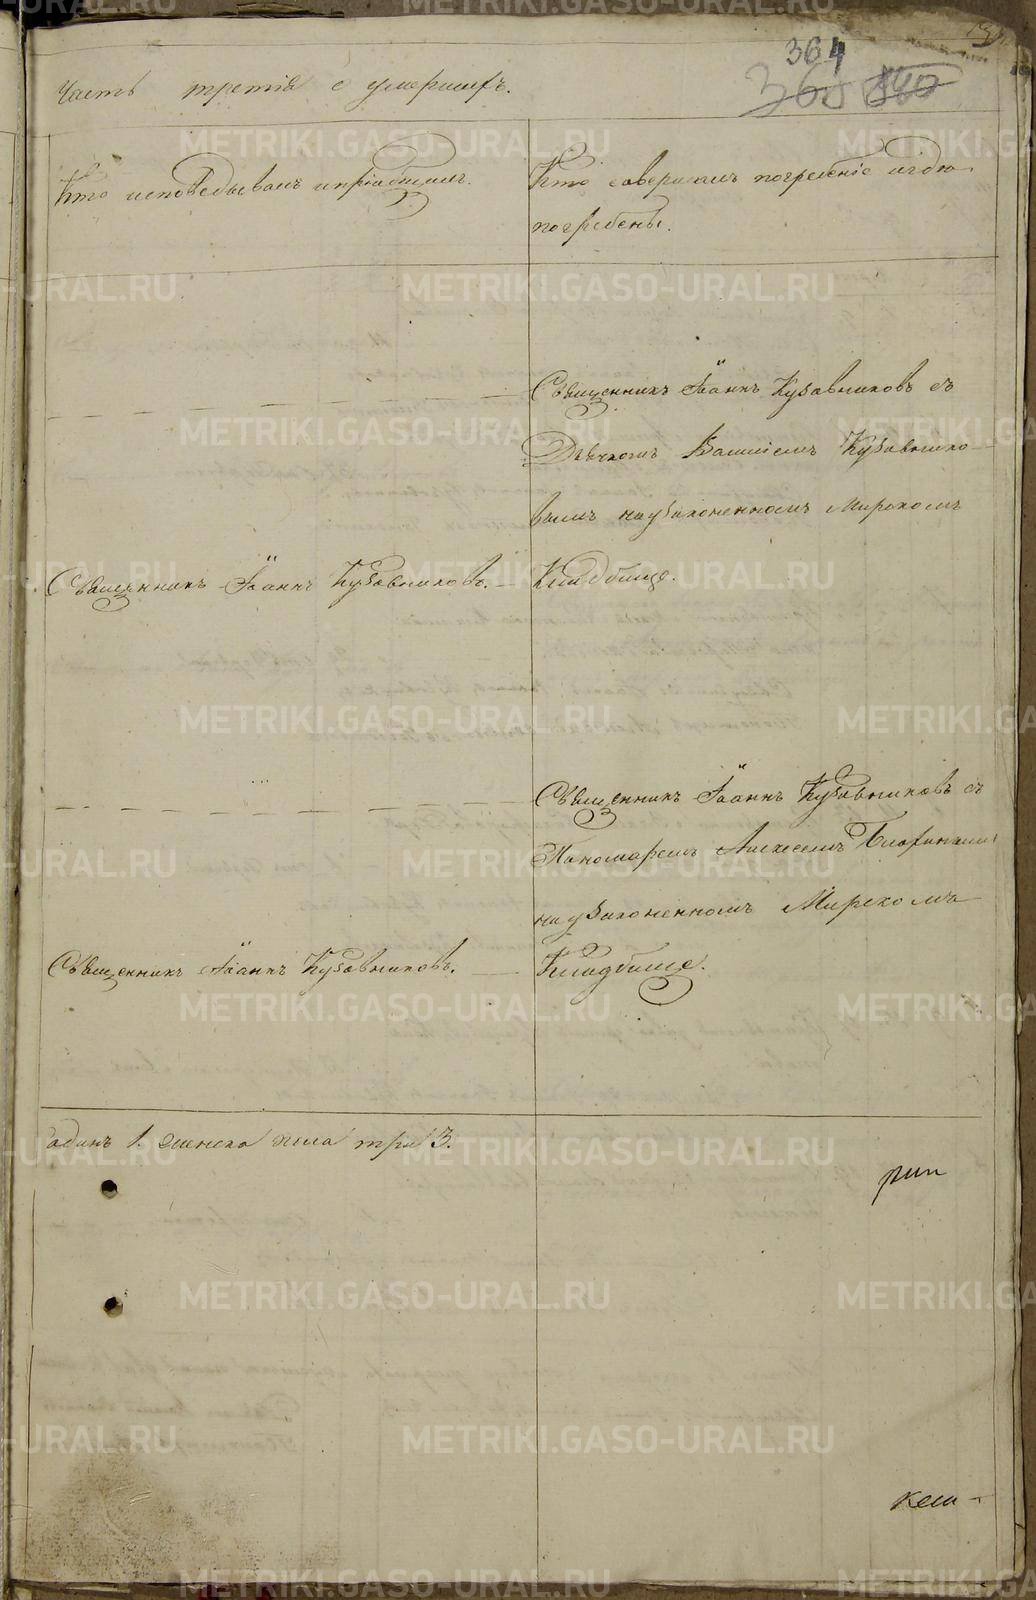 364
368 340
Часть третія о умершихъ.
Кто исповѣдывалъ и пріобщалъ.
Кто совершалъ погребеніе и гдѣ
погребены.
Священникъ Іоаннъ Кузовниковъ съ
Дьячкомъ Василіемъ Кузовнико-
вымъ на узаконенномъ Мирскомъ
Священникъ Іоаннъ Кузовниковъ. Кладбище.
Священникъ Іоаннъ Кузовниковъ съ
Пономаремъ Алексеемъ
на узаконенномъ Мирскомъ
Священникъ Іоаннъ Кузовниковъ. Кладбище.
одинъ 1. женска пола три 3.
METRIKI.GASO-URAL.RU